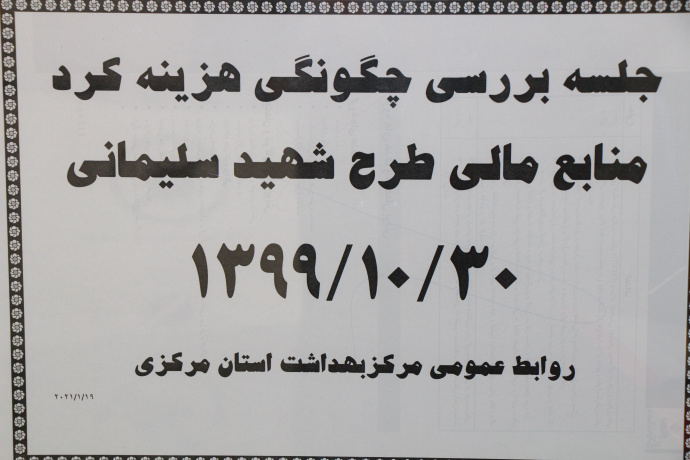 جلسه بررسی چگونگی هزینه کرد
منابع مالی طرح شهید سلیمانی
۱۳۹۹/۱۰/۳۰
روابط عمومی مرکزبهداشت استان مرکزی
۲۰۲۱/۱/۱۹